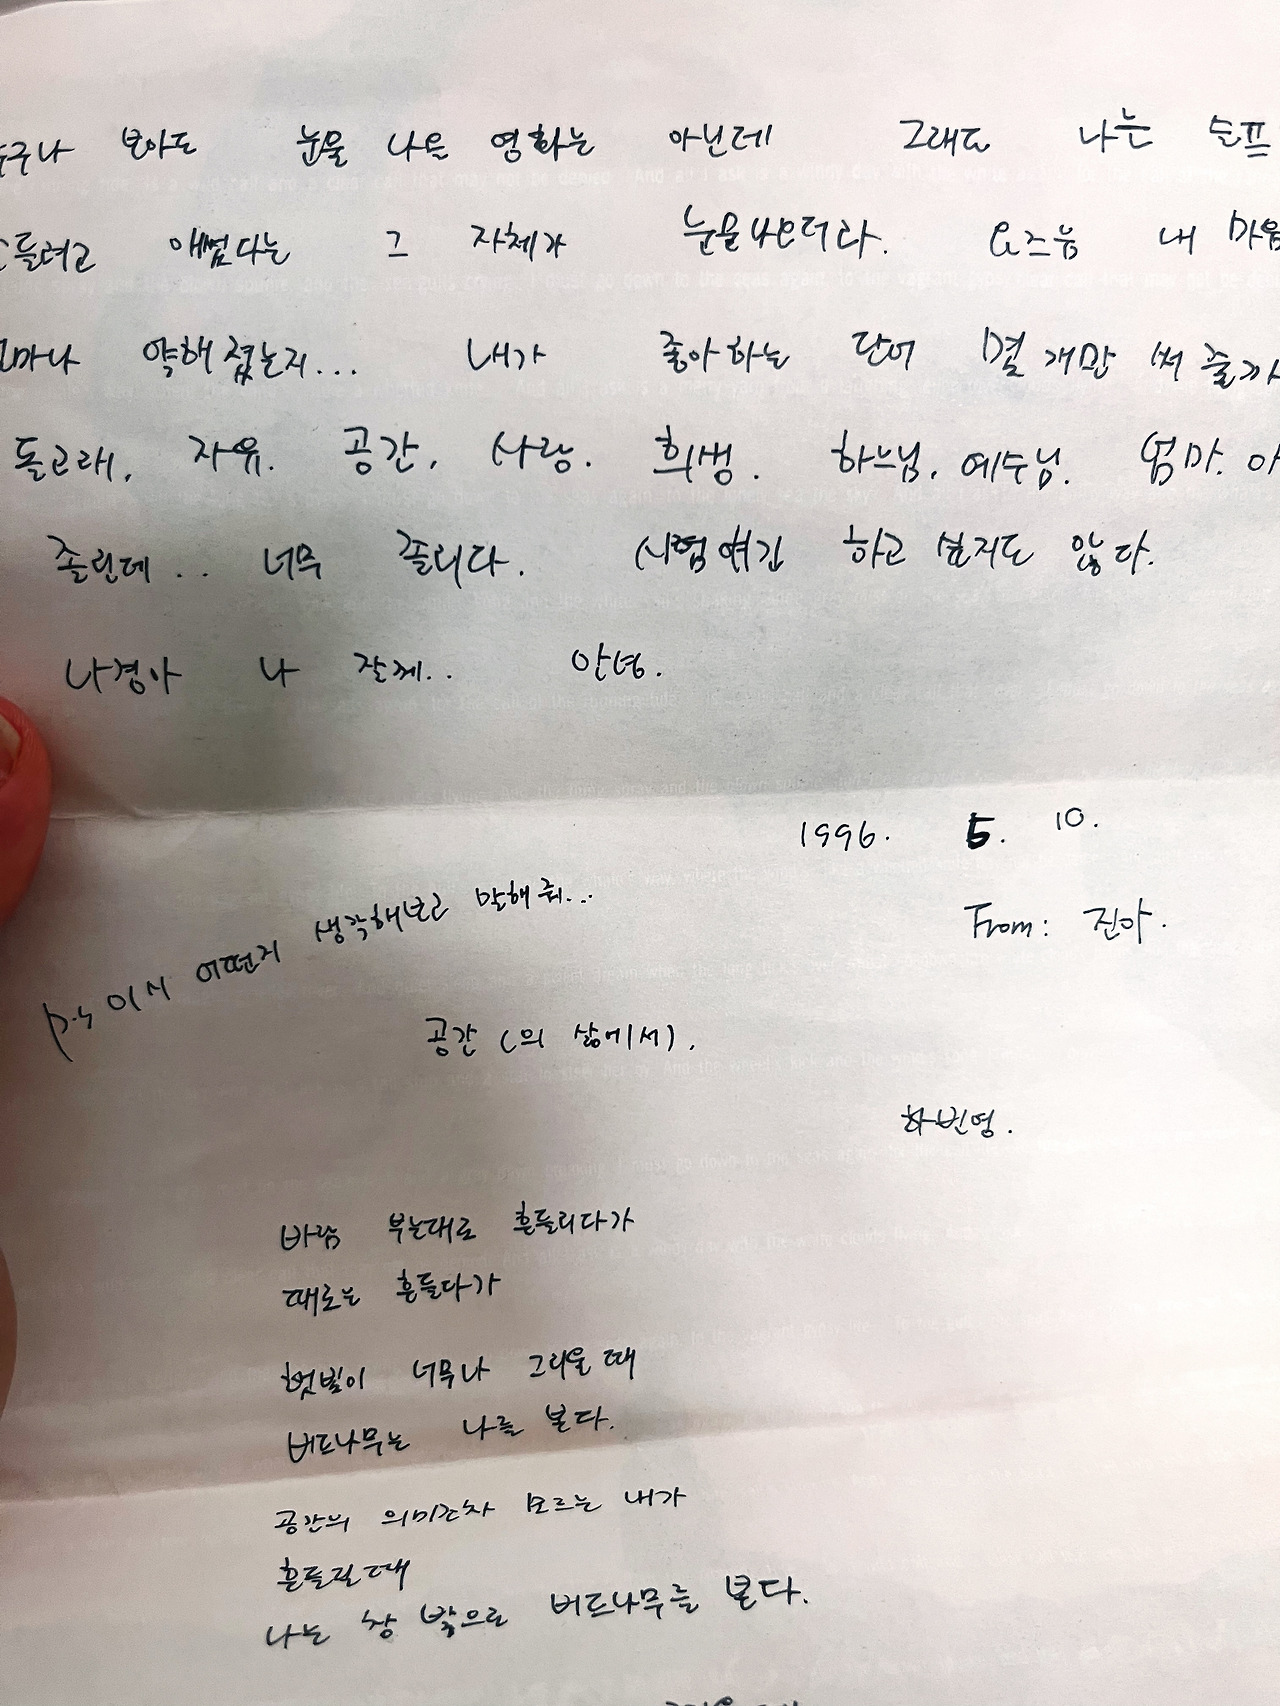 누구나 보아도 눈물 나올 영화는 아닌데 그래도 나는 슬프
만들려고 애썼다는 그 자체가 눈물나오더라. 요즈음 내 마음
얼마나 약해졌는지... 내가 좋아하는 단어 몇 개만 써 줄까
돌고래, 자유. 공간, 사랑. 희생. 하느님, 예수님. 엄마. 아
졸린데... 너무 졸리다. 시험얘긴 하고 싶지도 않다.
나경아 나 잘께.. 안녕.
1996. 5. 10.
From: 진아.
P.S 이 시 어떤지 생각해보고 말해 줘...
공간 (의 삶에서).
하빈영.
바람 부는대로 흔들리다가
때로는 흔들다가
햇빛이 너무나 그리울 때
버드나무는 나를 본다.
공간의 의미조차 모르는 내가
흔들릴 때
나는 창 밖으로 버드나무를 본다.